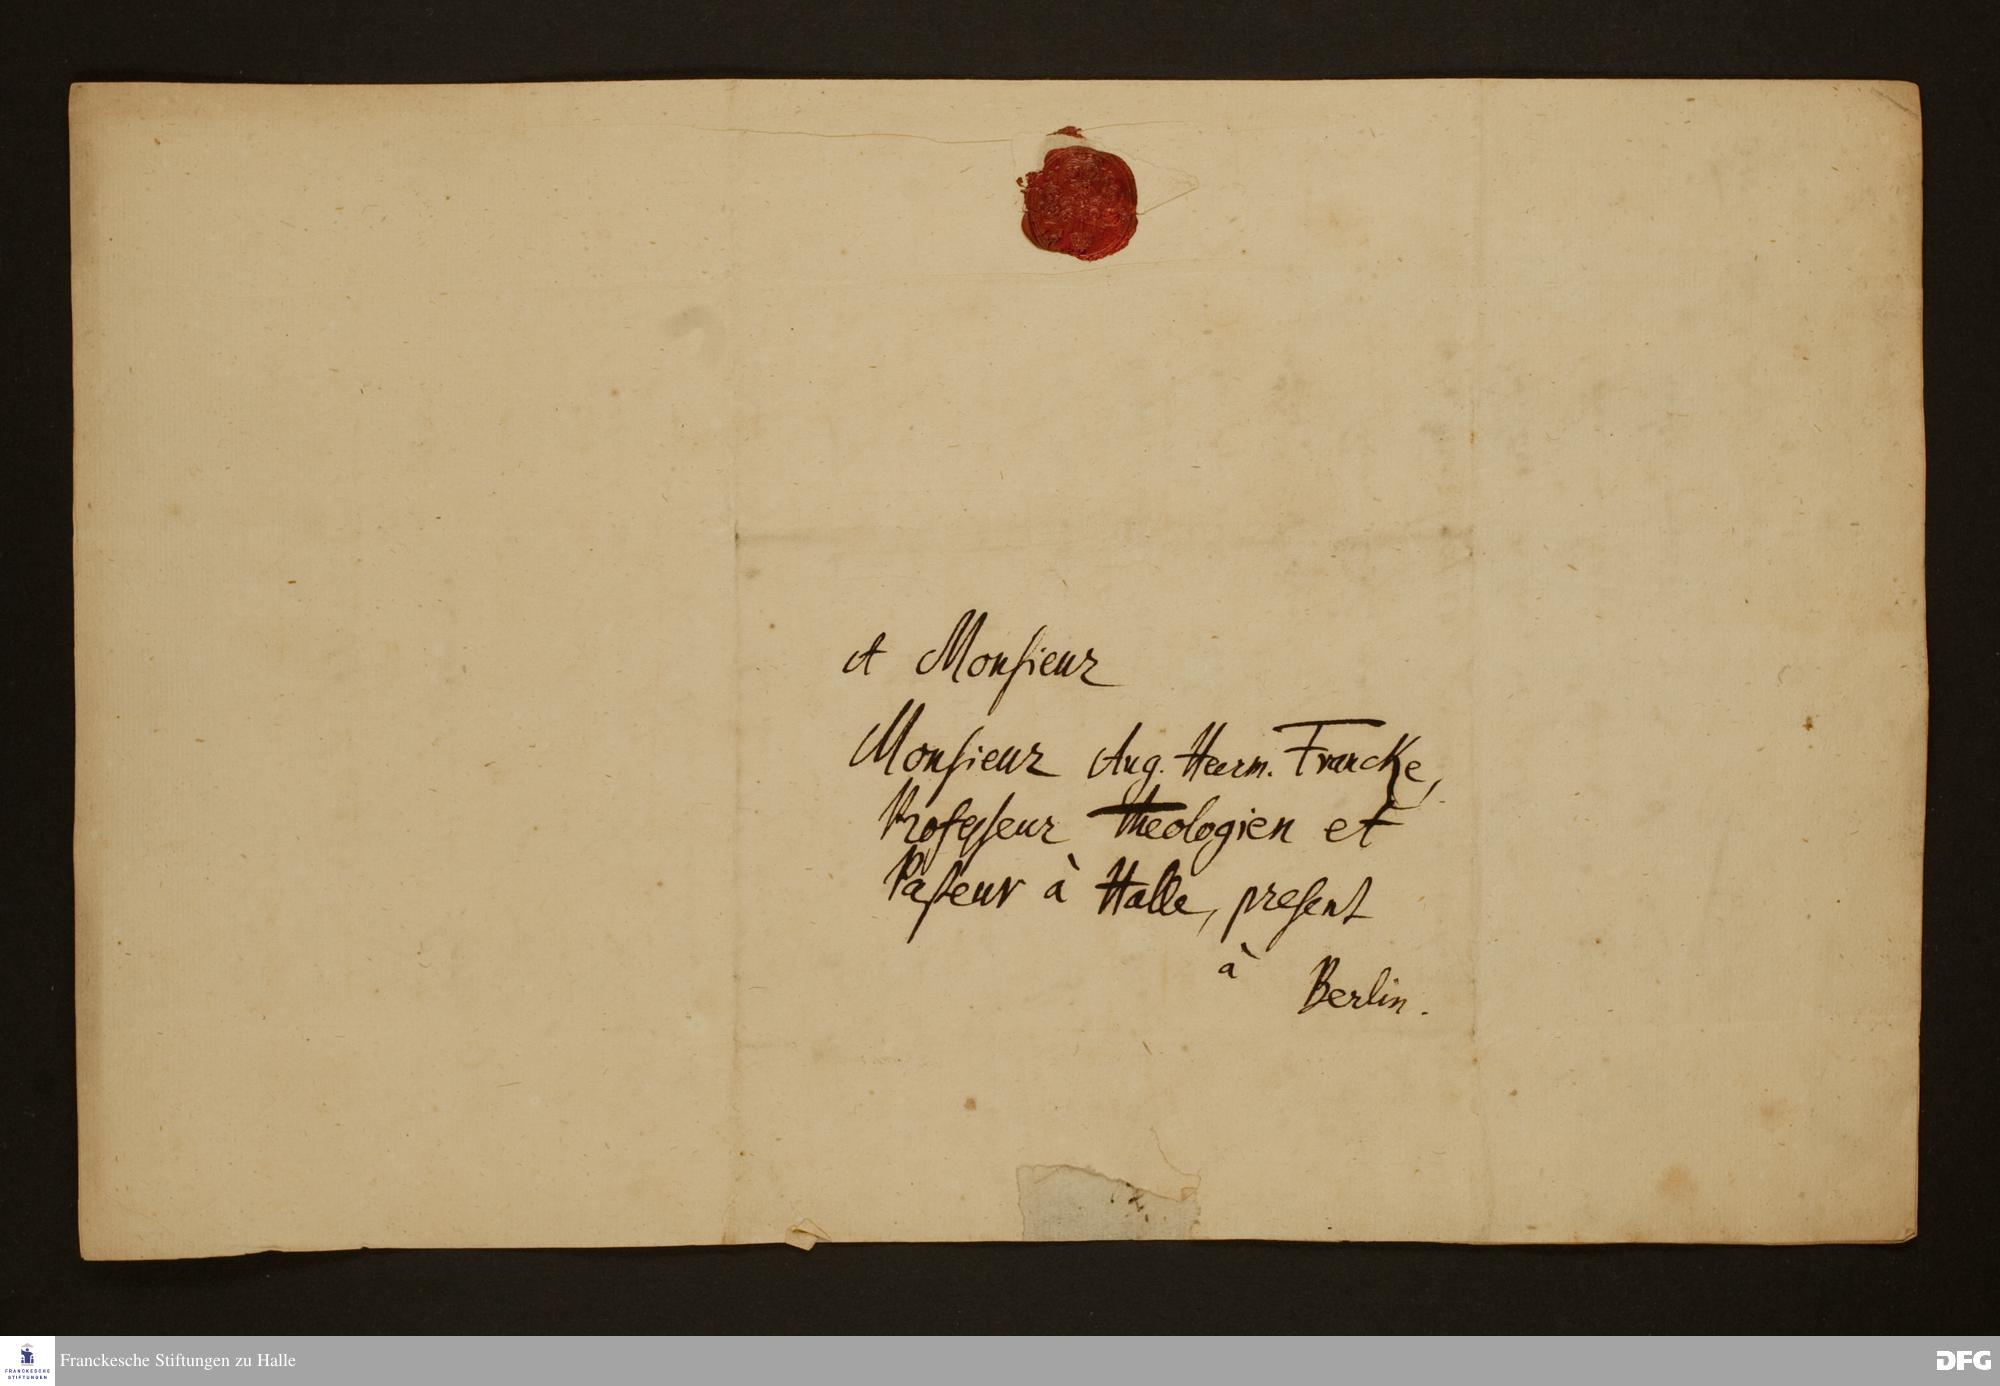 A Monsieur
Monsieur Aug. Herm. Francke,
Professeur Theologien et
Pasteur à Halle, present
à Berlin.
FRANCKESCHE
STIFTUNGEN
Franckesche Stiftungen zu Halle
DFG